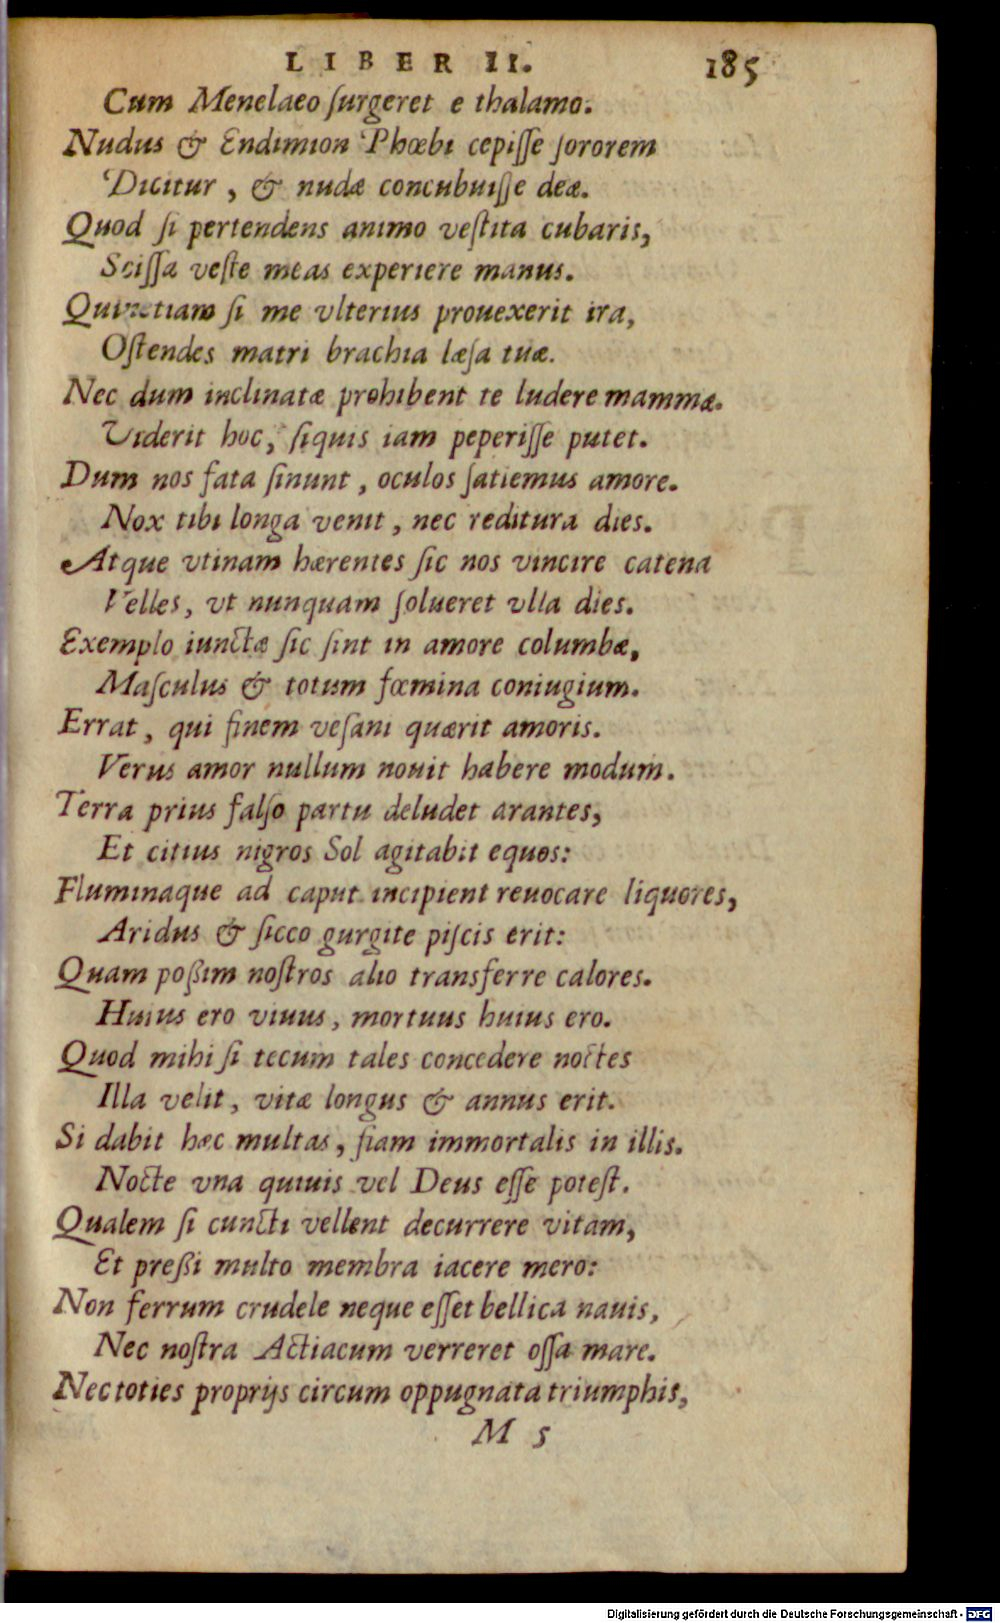 LIBER II. 185
Cum Menelaeo ſurgeret e thalamo.
Nudus & Endimion Phœbi cepiſſe ſororem
Dicitur, & nudæ concubuiſſe deæ.
Quod ſi pertendens animo veſtita cubaris,
Sciſſa veſte meas experiere manus.
Quinetiam ſi me vlterius prouexerit ira,
Oſtendes matri brachia læſa tuæ.
Nec dum inclinatæ prohibent te ludere mammæ.
Viderit hoc, ſiquis iam peperiſſe putet.
Dum nos fata ſinunt, oculos ſatiemus amore.
Nox tibi longa venit, nec reditura dies.
Atque vtinam hærentes ſic nos vincire catena
Velles, vt nunquam ſolueret vlla dies.
Exemplo iunctæ ſic ſint in amore columbæ,
Maſculus & totum fœmina coniugium.
Errat, qui finem veſani quærit amoris.
Verus amor nullum nouit habere modum.
Terra prius falſo partu deludet arantes,
Et citius nigros Sol agitabit equos:
Fluminaque ad caput incipient reuocare liquores,
Aridus & ſicco gurgite piſcis erit:
Quam poßim noſtros alio transferre calores.
Huius ero viuus, mortuus huius ero.
Quod mihi ſi tecum tales concedere noctes
Illa velit, vitæ longus & annus erit.
Si dabit hæc multas, fiam immortalis in illis.
Nocte vna quiuis vel Deus eſſe poteſt.
Qualem ſi cuncti vellent decurrere vitam,
Et preßi multo membra iacere mero:
Non ferrum crudele neque eſſet bellica nauis,
Nec noſtra Actiacum verreret oſſa mare.
Nec toties proprijs circum oppugnata triumphis,
M 5
Digitalisierung gefördert durch die Deutsche Forschungsgemeinschaft - DFG